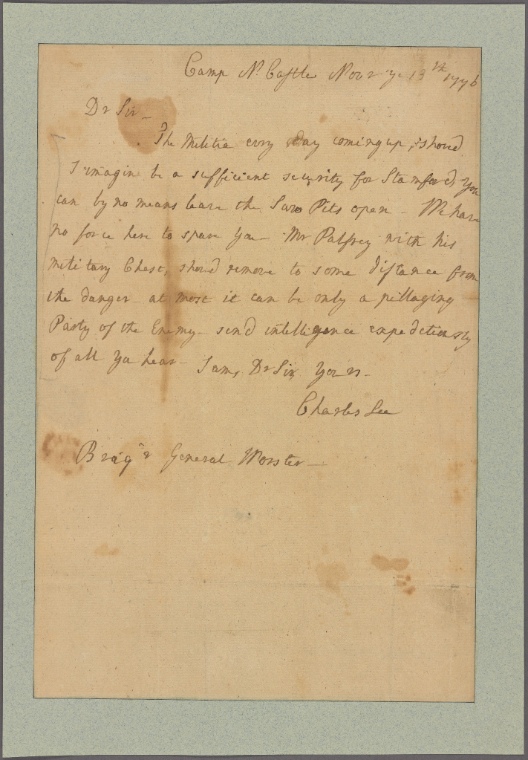 Camp N. Castle Novr ye 13th 1776
Dr Sir -
The Militia evry day coming up, shoud
I imagine be a sufficient security for Stamford, you
can by no means leave the Saw Pits open - We have
no force here to spare you - Mr Palfrey with his
military Chest, shoud remove to some distance from
the danger at most it can be only a pillaging
Party of the Enemy - send intelligence expeditiously
of all you hear - I am, Dr Sir Yours -
Charles Lee
Brigr General Worster -